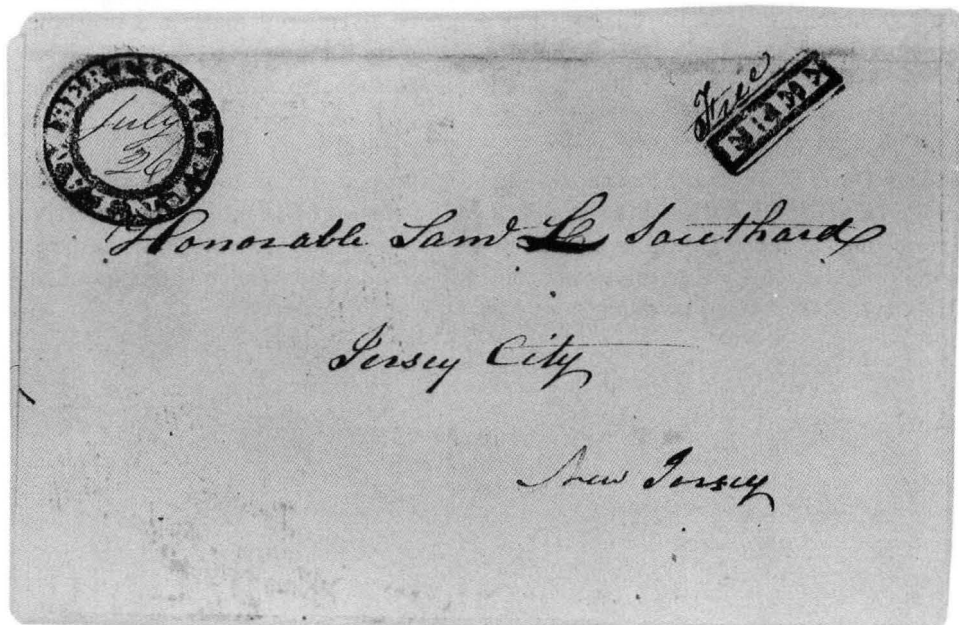 July
26
Free
Honorable Saml L Southard
Jersey City
New Jersey